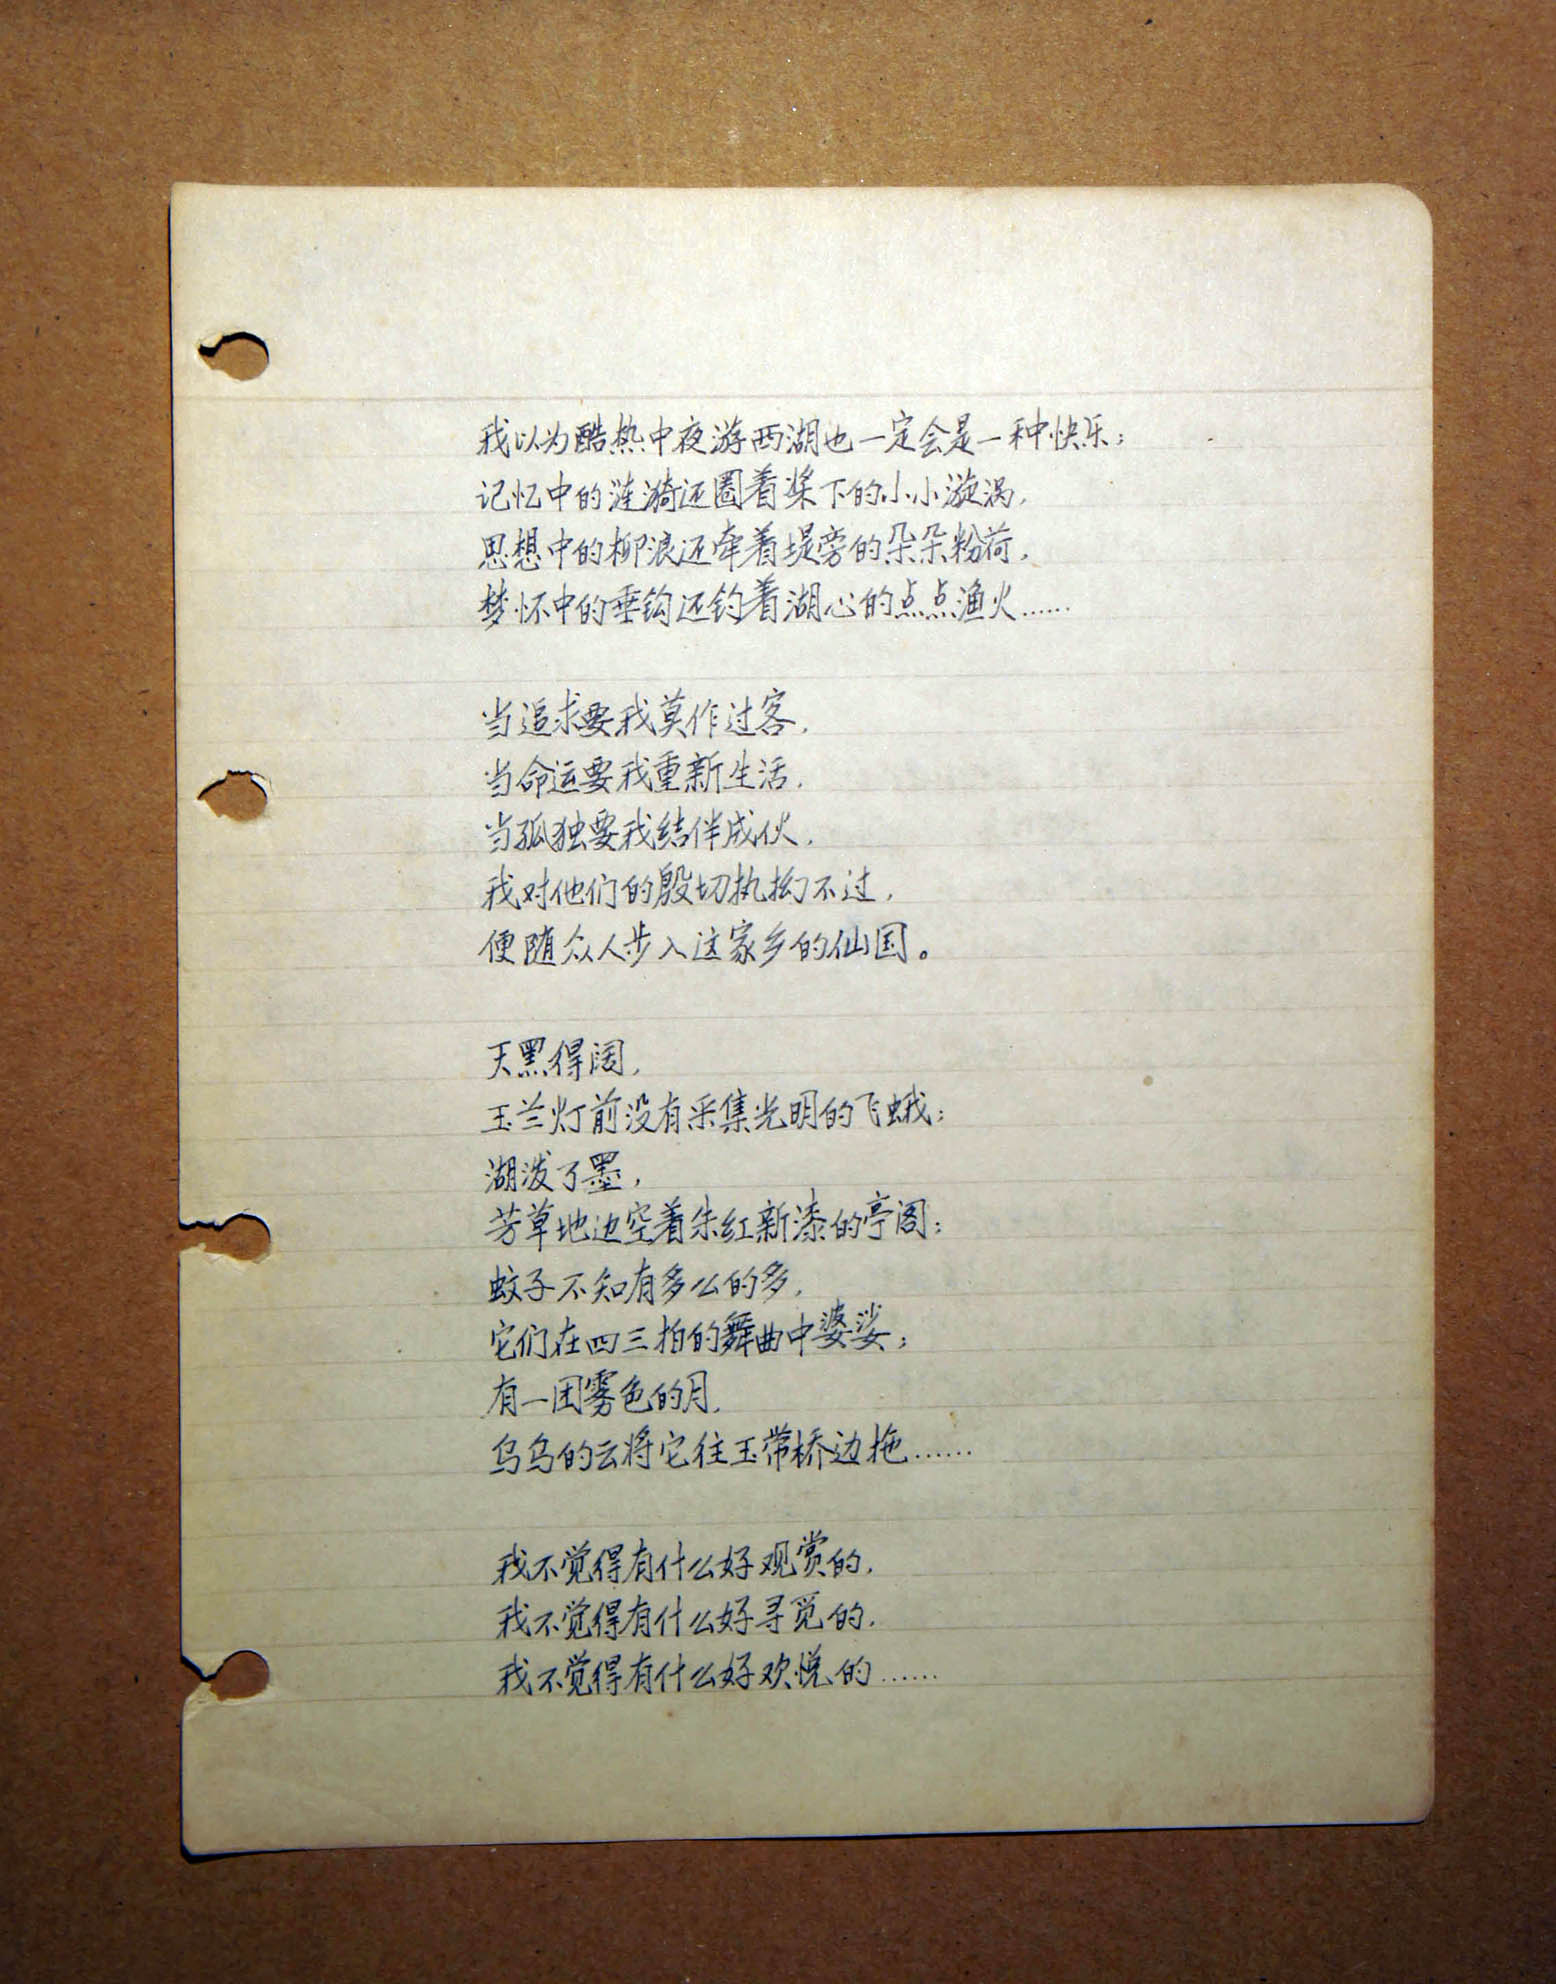 我以为酷热中夜游西湖也一定会是一种快乐;
记忆中的涟漪还圈着桨下的小小漩涡,
思想中的柳浪还牵着堤旁的朵朵粉荷,
梦怀中的垂钩还钓着湖心的点点渔火……
当追求要我莫作过客,
当命运要我重新生活,
当孤独要我结伴成伙,
我对他们的殷切执拗不过,
便随众人步入这家乡的仙国。
天黑得阔,
玉兰灯前没有采集光明的飞蛾;
湖泼了墨,
芳草地边空着朱红新漆的亭阁;
蚊子不知有多么的多,
它们在四三拍的舞曲中婆娑;
有一团雾色的月,
乌乌的云将它往玉带桥边拖……
我不觉得有什么好观赏的,
我不觉得有什么好寻觅的,
我不觉得有什么好欢悦的……